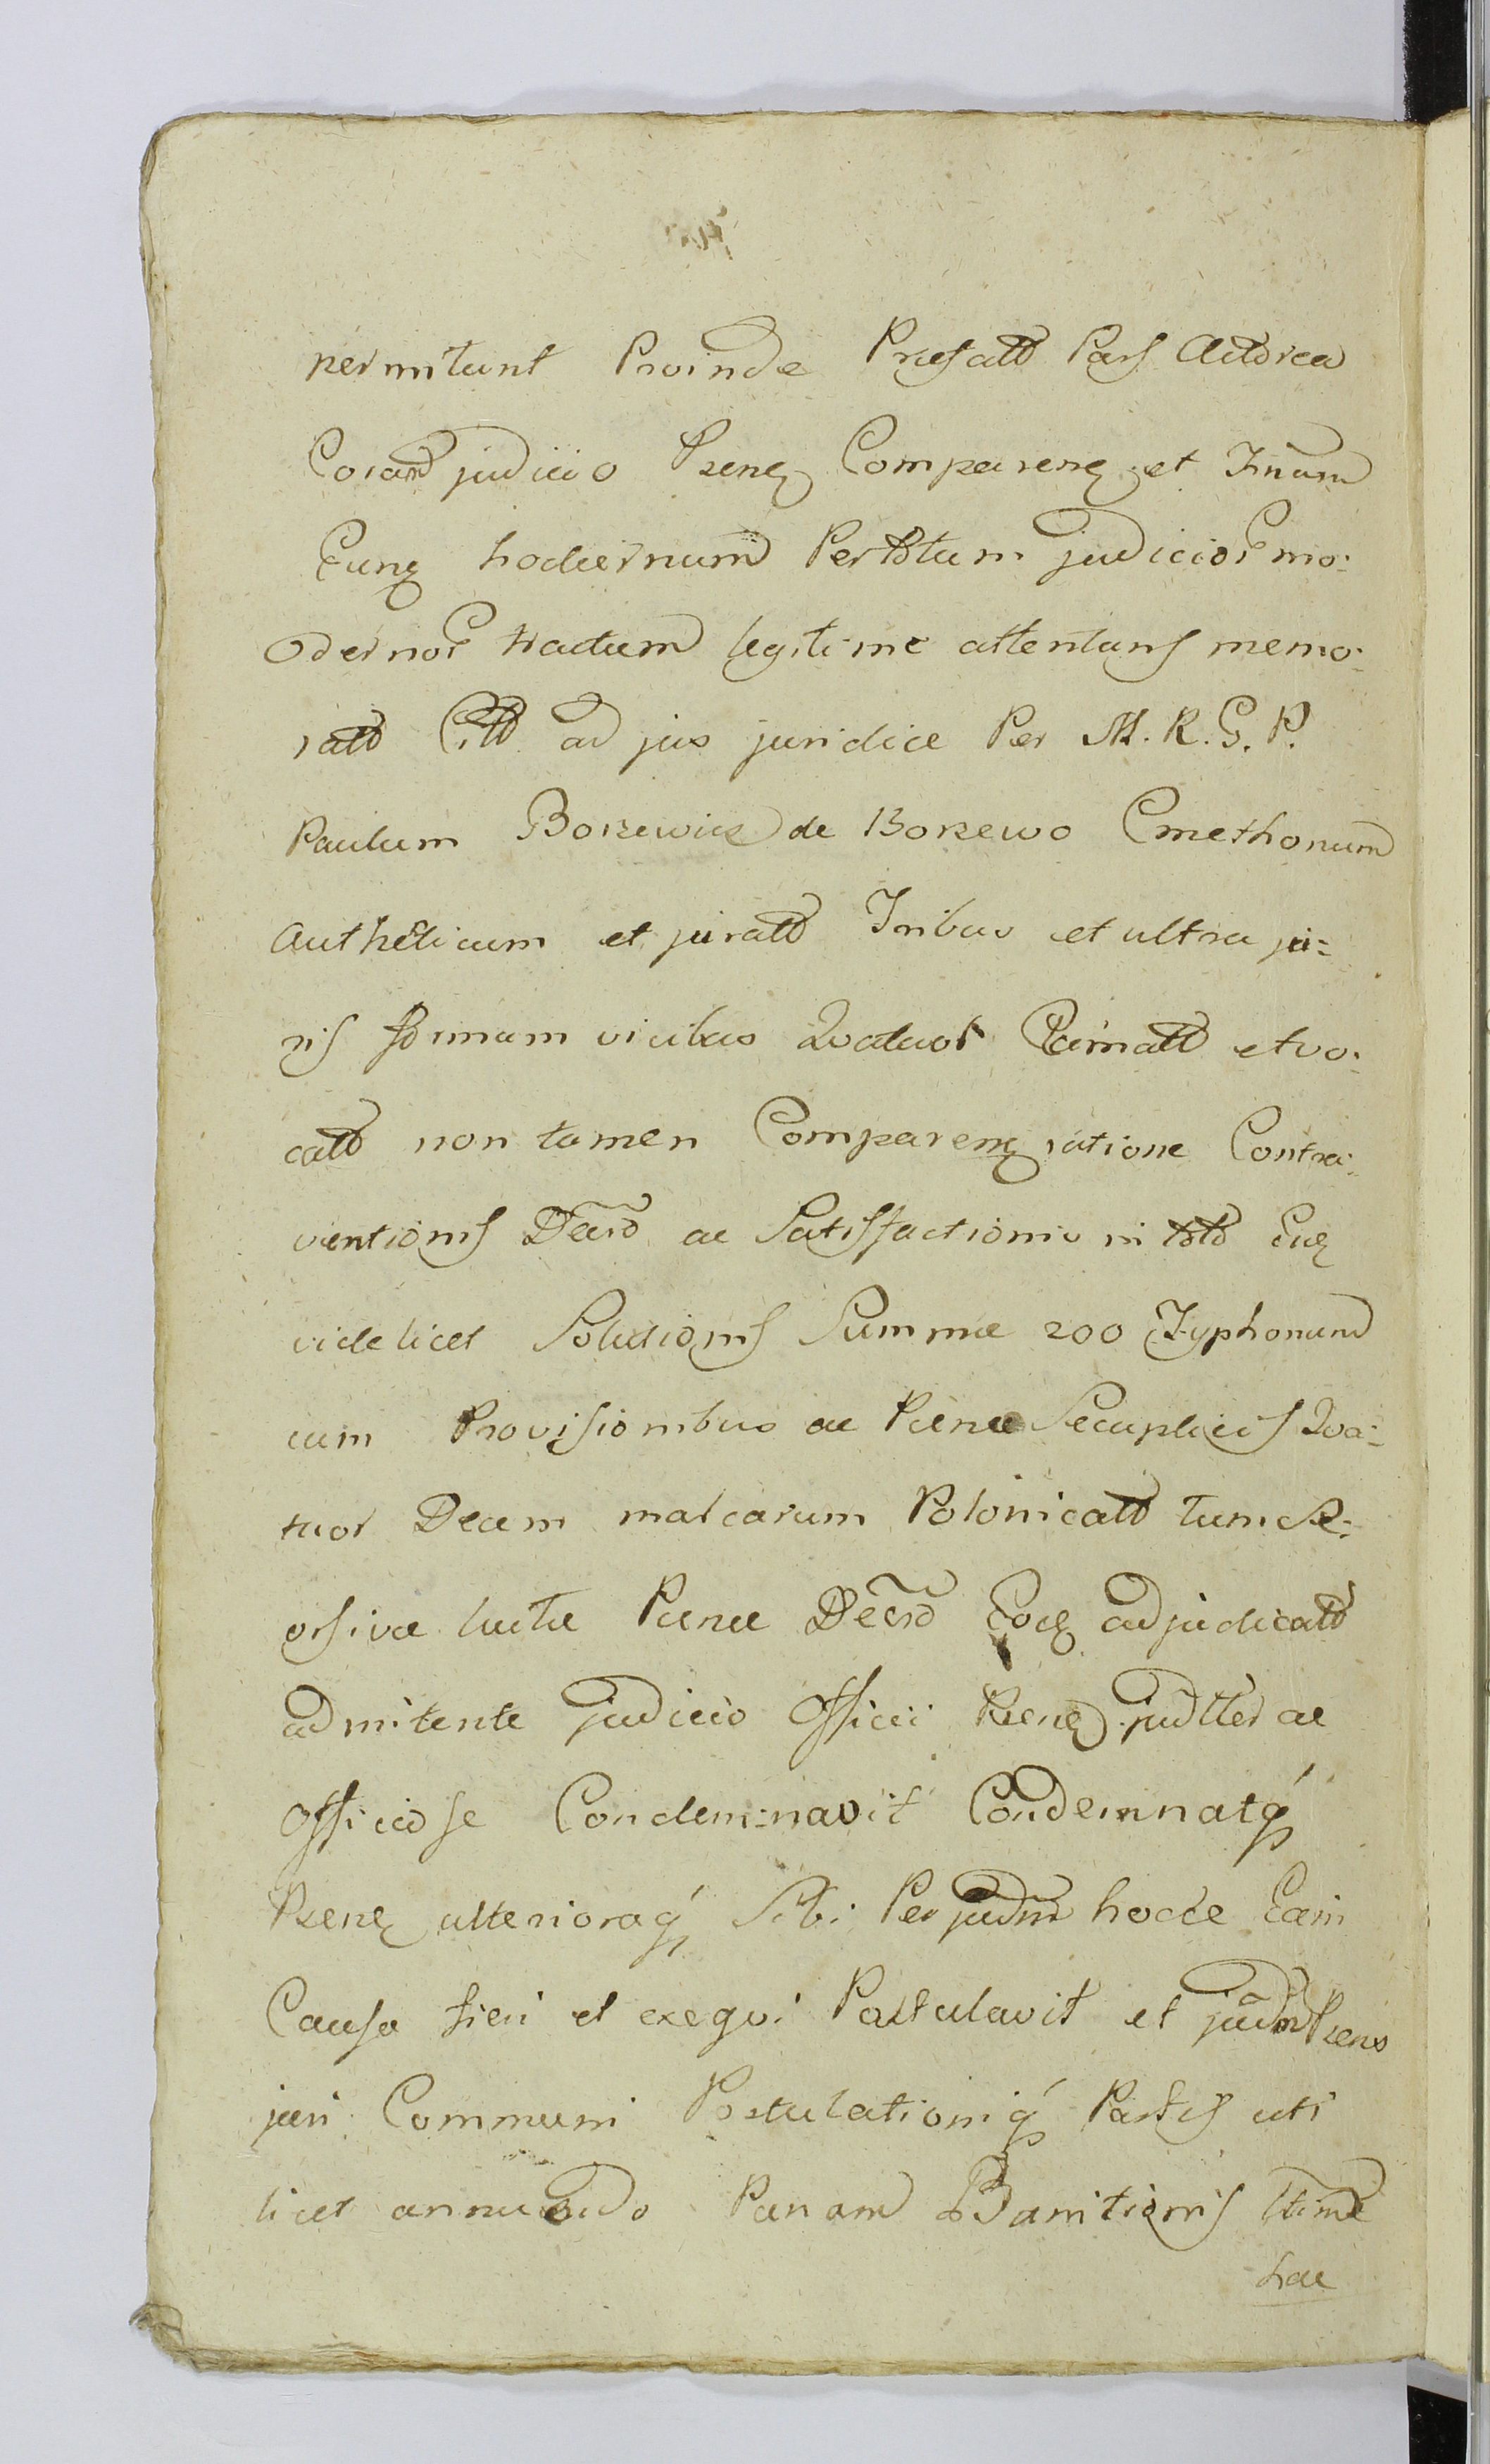 permitunt Proinde Præfatt Pars Actorea
Coram judicio Præng Compareng et Tnum
Eung hodiernum Per totum judicior mo:
dernor tractum legitime attentans memo:
ratt Citt ad jus juridice Per M. R. G. P.
Paulum Borzewicz de Borzewo Cmethonum
Authēticum et juratt Tribus et ultra ju:
ris formam vicibus Quatuor Clamatt et vo:
catt non tamen Compareng ratione Contra:
ventionis Decrō ac Satisfactionis in toto Eug
videlicet Solutionis Summæ 200 Typhonum
cum Provisionibus ac Pænæ Secuplicis Qva:
tuor Decem marcarum Polonicatt tum Se:
orsivæ luitæ Pænæ Decrō Eodg adjudicatt
admitente judicio Officii Præng judtter ac
Officiose Condem:navit Condemnatq́
Præng ulterioraq́ Sibi Per judm hocce Ea in
Causa fieri et exeqvi Postulavit et judm Præns
juri Communi Postulationiq́ Partis uti
licet annuendo Pænam Banitionis ltimæ
hac